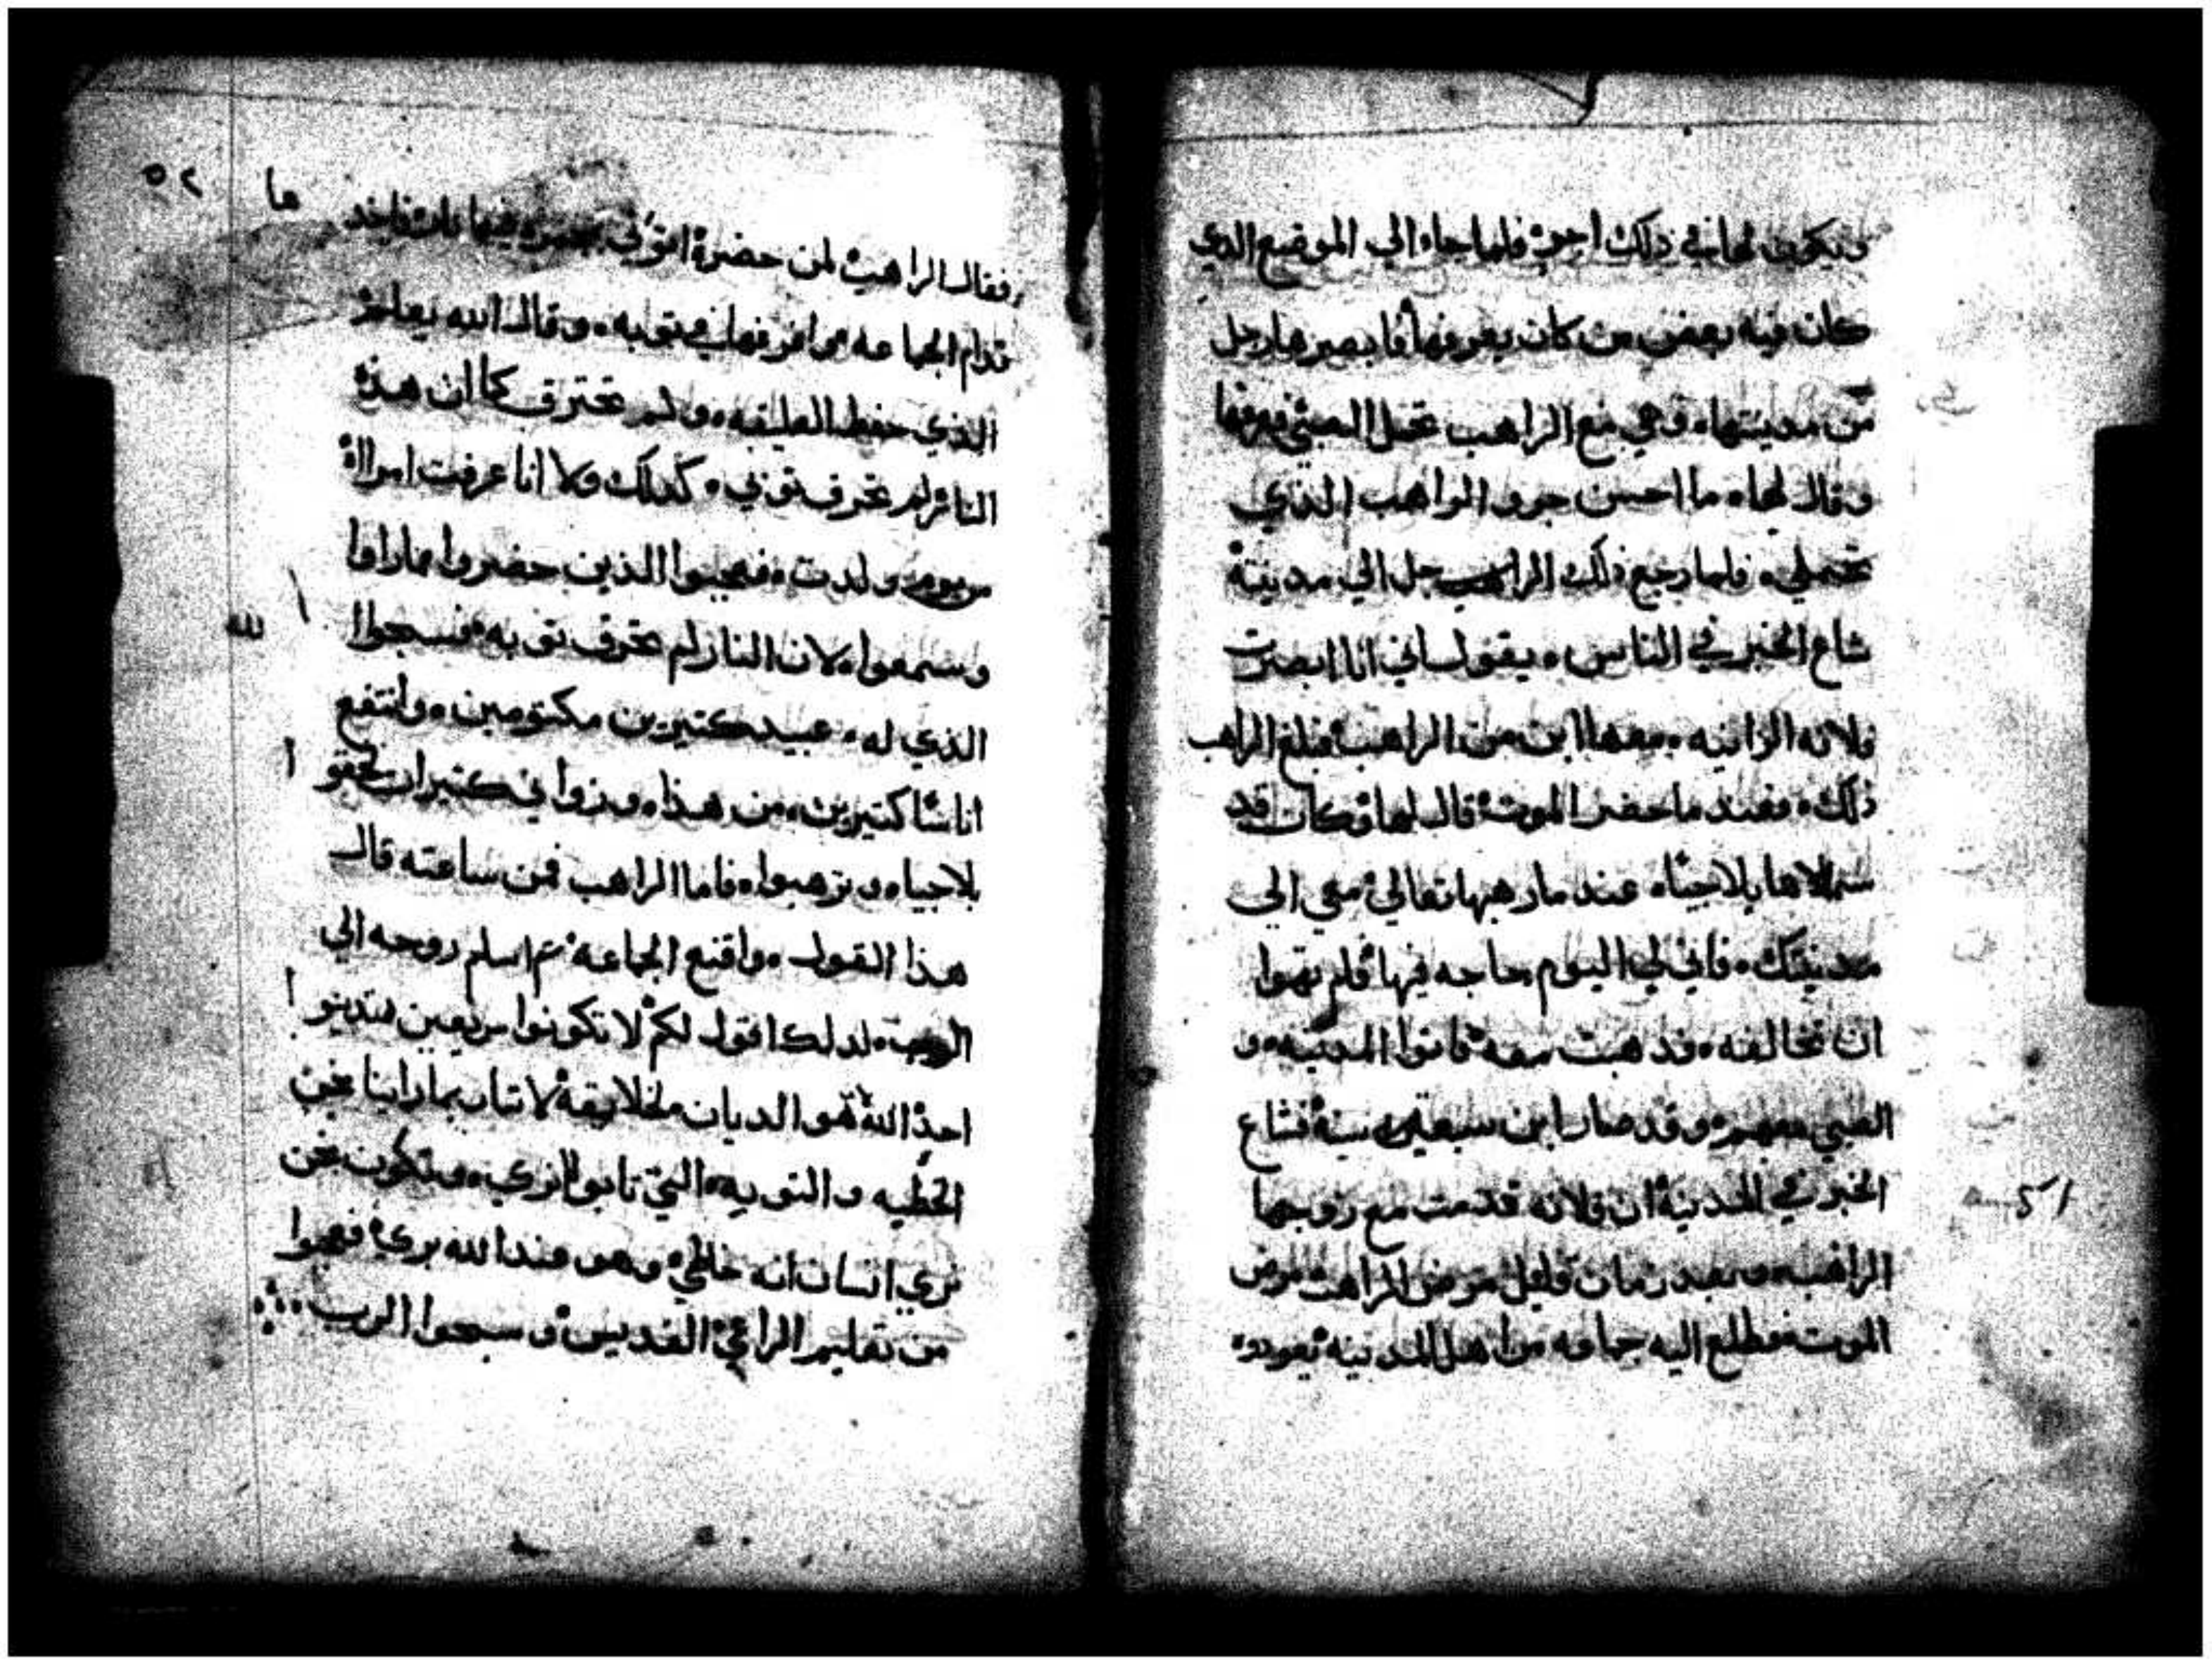 ويكون لها في ذلك اجر فلما جاء الي الموضع الذي
كان فيه بعض من كان يعرفها فابصرها رجل
من مدينتها وهي مع الراهب تحمل الصبي فعرفها
وقال لها ما احسن جرو الراهب الذي
تحملي فلما رجع ذلك الرجل الي مدينته
شاع الخبر في الناس يقول اني انا ابصرت
فلانه الزانيه معها ابن من الراهب فبلغ الراهب
ذلك فعند ما حضر الموت قال لها وكان قد
سماها بلاجياه عند ما رهبها تعالي معي الي
مدينتك فاني لي اليوم حاجه فيها فلم تهوا
ان تخالفه فذهبت معه فاتوا المدينه و
الصبي معهم وقد صار ابن سبعة سنة فشاع
الخبر في المدينة ان فلانه قدمت مع زوجها
الراهب وبعد زمان قليل مرض الراهب مرض
الموت فطلع اليه جماعه من اهل المدينه تعوده
٥٢
فقال الراهب لمن حضره اتوني بمجمره فيها نار فاخدها
قدام الجماعه وافرغها في توبه وقال الله يعلم
الذي حفظ العليقه ولم تحترق كما ان هذه
النار لم تحرق توبي كدلك ولا انا عرفت امراة
من يوم ولدت فعجبوا الذين حضروا مما راوا
وسمعوا لان النار لم تحرق توبه فسبحوا لله
الذي له عبيد كتيرين مكتومين وانتفع
اناسا كتيرين من هذا وزواني كتير ان لحقوا
بلاجياه وترهبوا فاما الراهب فمن ساعته قال
هذا القول واقنع الجماعة تم اسلم روحه الي
الرب لدلك اقول لكم لا تكونوا سريعين تدينوا
احد الله هو الديان لخلايقه لاننا ربما راينا نحن
الخطيه والتوبه التي تابوا لا نري وتكون نحن
نري انسان انه خاطي وهو عند الله بري فعجبوا
من تعليم الراعي القديس وسبحوا الرب